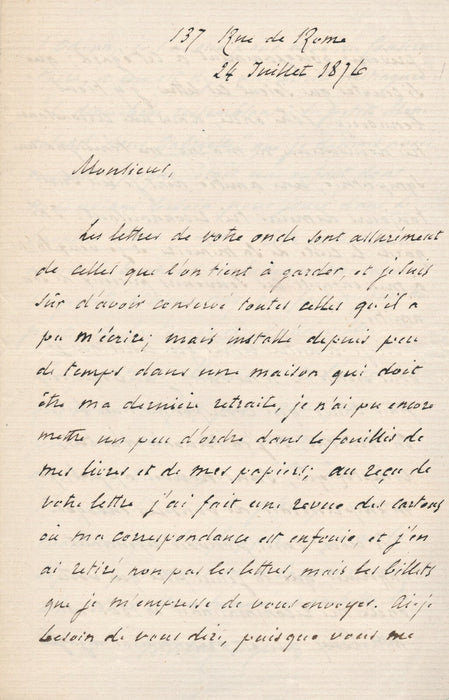 137 Rue de Rome
24 Juillet 1876
Monsieur,
Les lettres de votre oncle sont assurément
de celles que l'on tient à garder, et je suis
sûr d'avoir conservé toutes celles qu'il a
pu m'écrire; mais installé depuis peu
de temps dans une maison qui doit
être ma dernière retraite, je n'ai pu encore
mettre un peu d'ordre dans le fouillis de
mes livres et de mes papiers; au reçu de
votre lettre j'ai fait une revue des cartons
où ma correspondance est enfouie, et j'en
ai retiré, non pas les lettres, mais les billets
que je m'empresse de vous envoyer. Ai-je
besoin de vous dire, puisque vous me